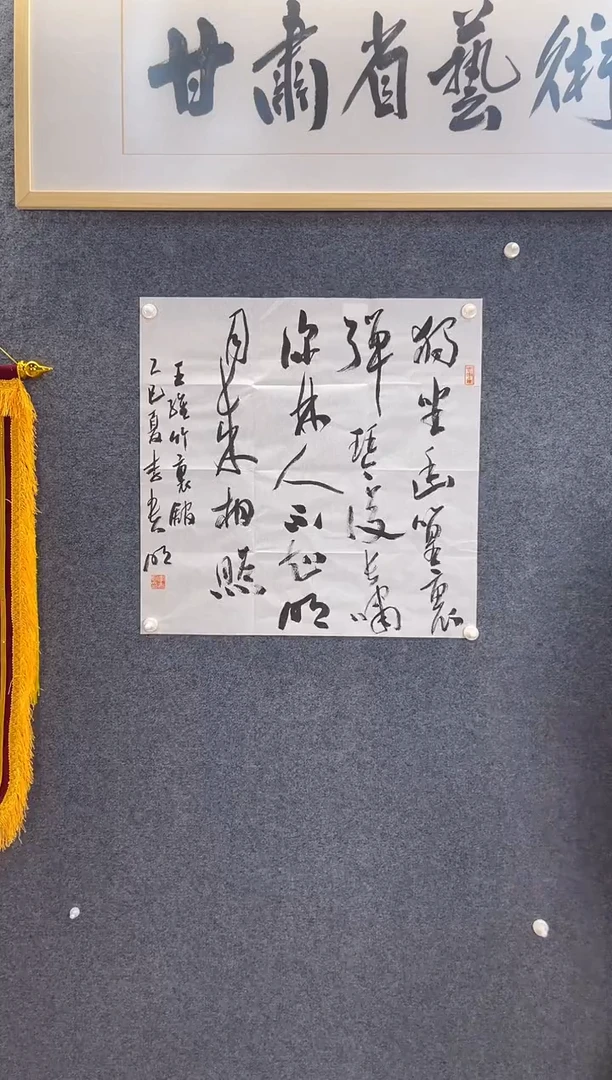 甘肅省藝術
獨坐幽篁裏
彈琴復長嘯
深林人不知明
月來相照
王維竹裏館
乙巳夏李貴明